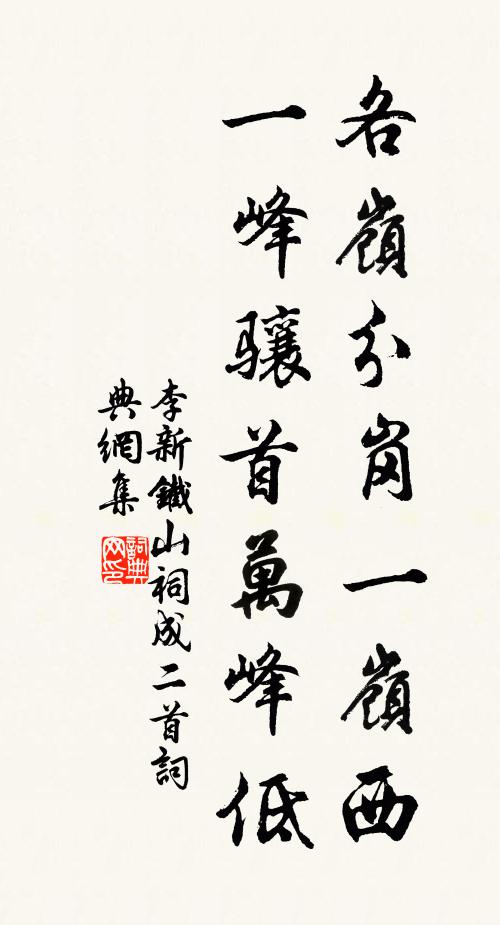 各嶺分崗一嶺西
一峰驤首萬峰低
李新鐵山祠成二首詞
典網集
詞典網印